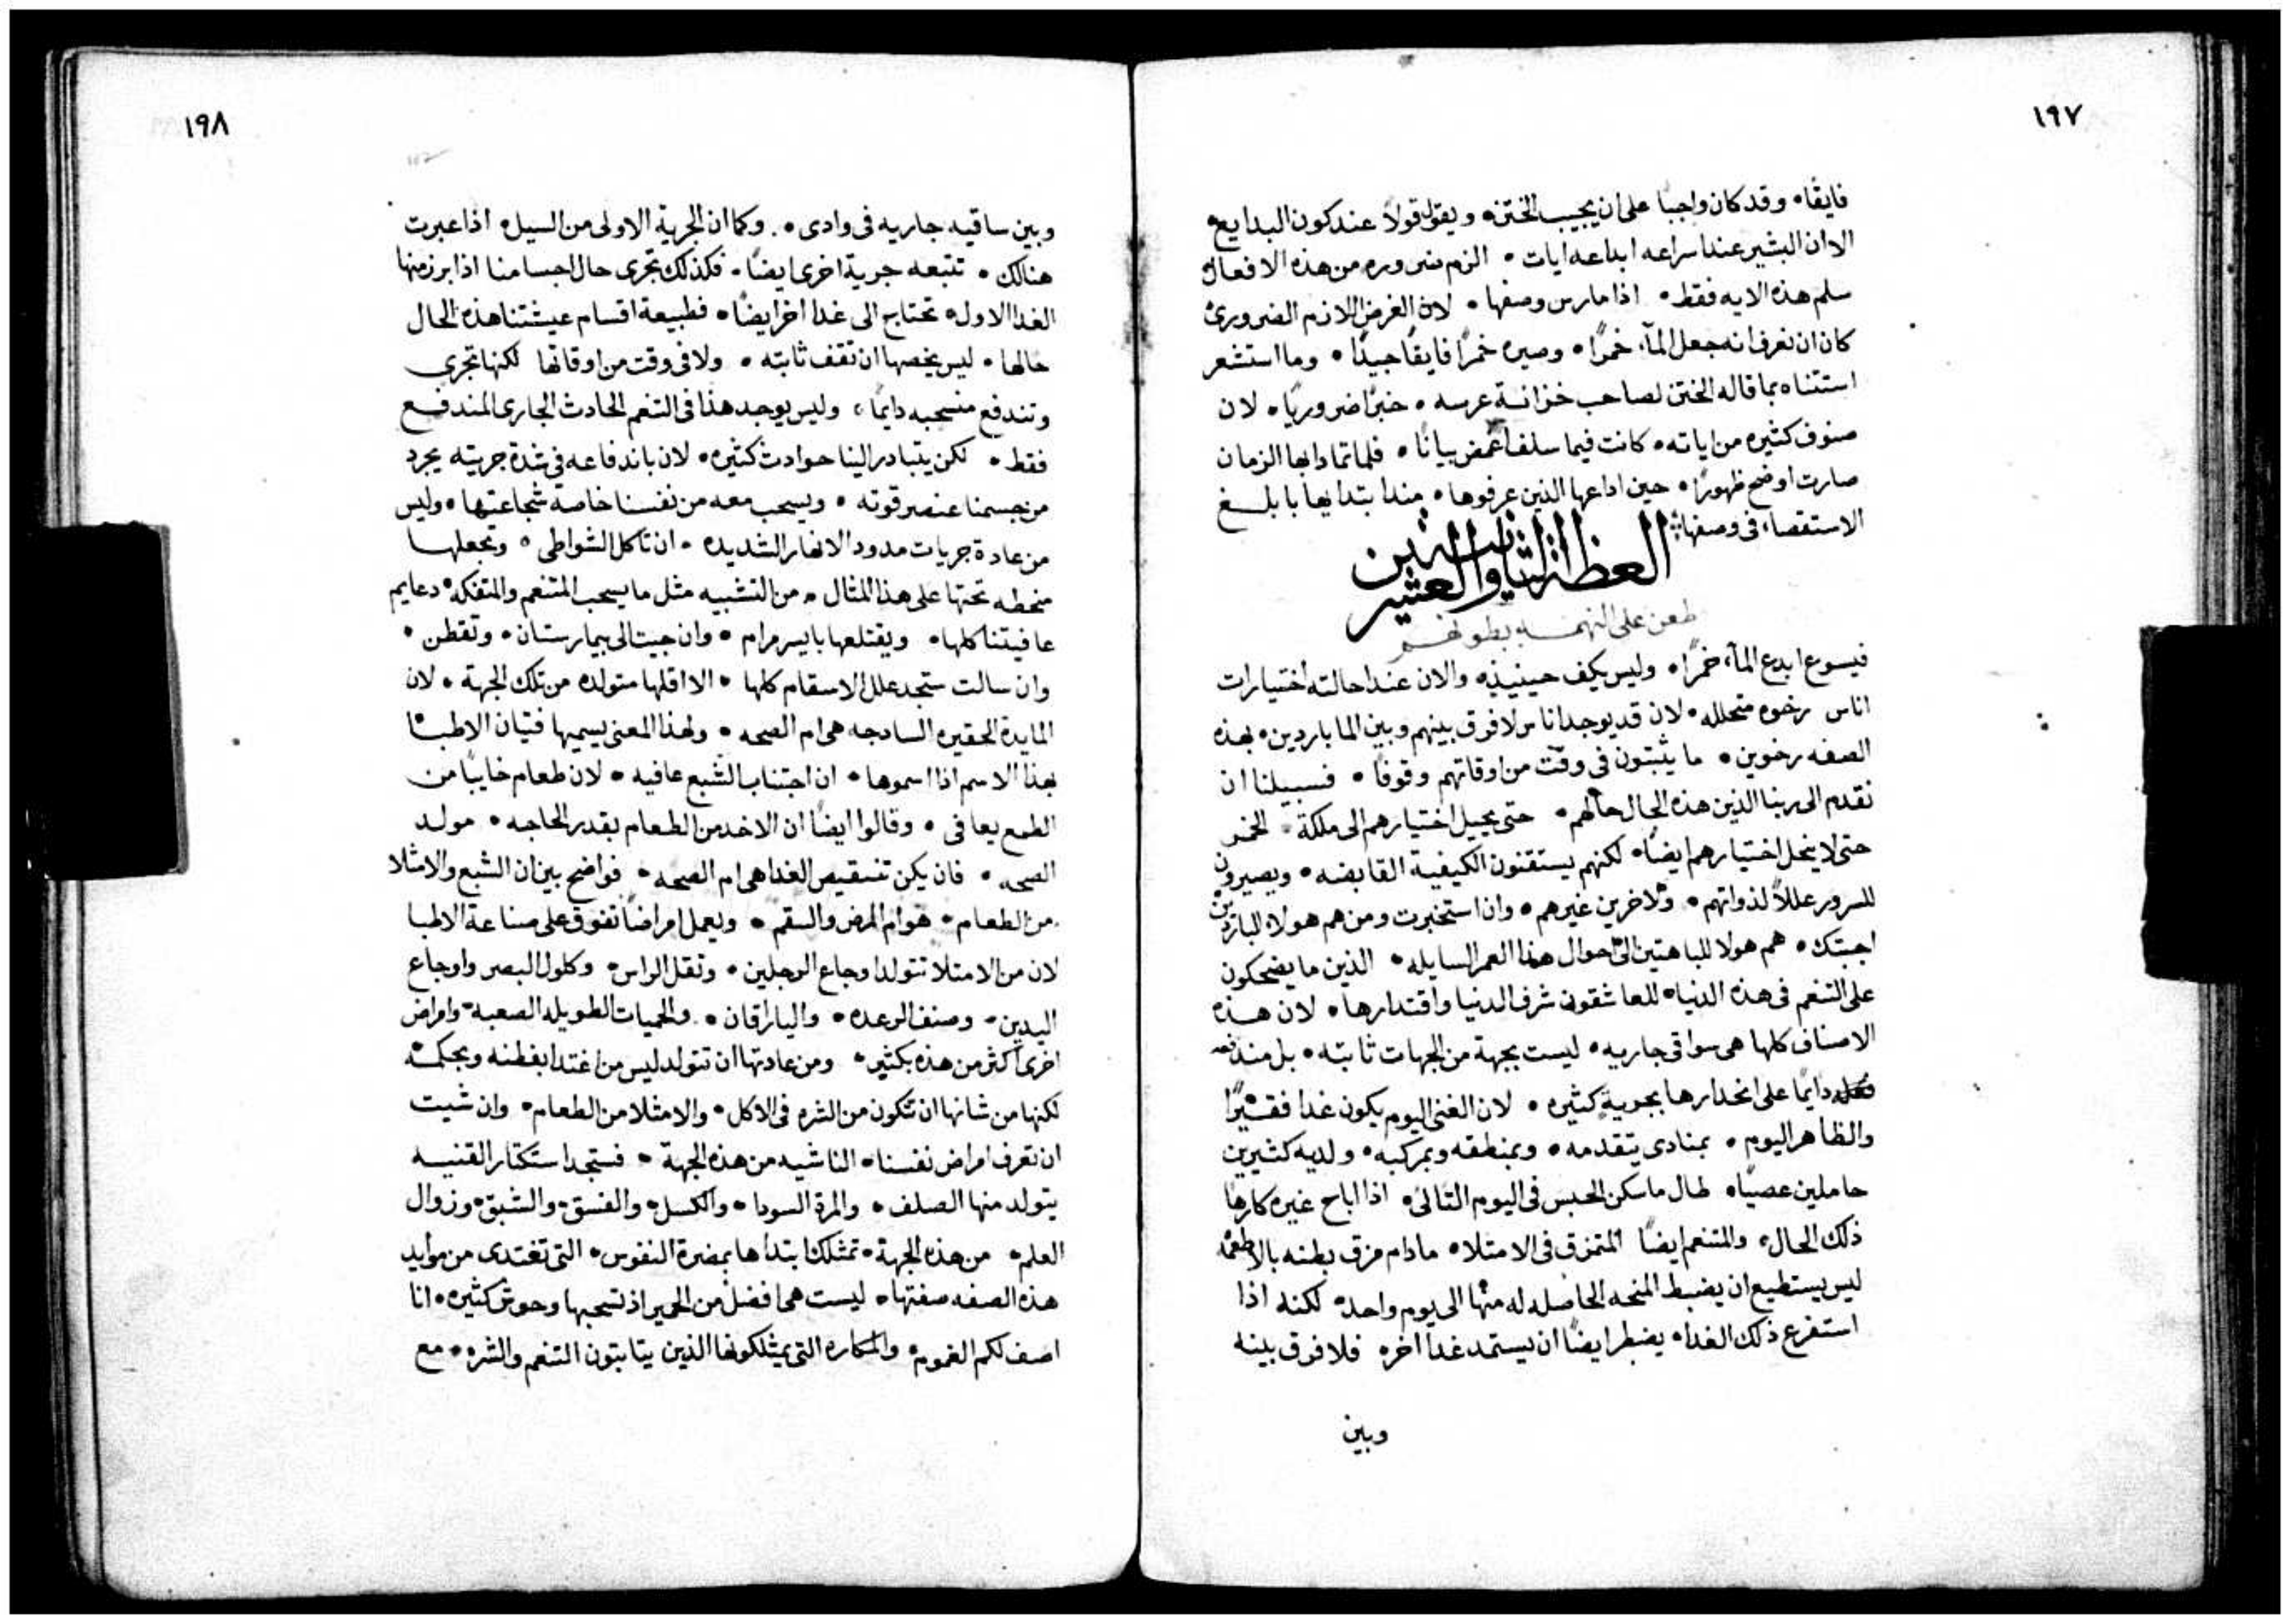 ١٩٧
فايقًا • وقد كان واجبًا على ان يجيب الختن • ويقول قولًا عند كون البدايع •
الا ان البشير عند اسراعه ابداعه ايات • الزم ضروره من هذه الافعال
سلم هذه الايه فقط • اذا مارس وصفها • لان الغرض اللازم الضروري
كان ان نعرف انه جعل الماء خمرًا • وصيره خمرًا فايقًا جيدًا • وما استشعر
استتناه بما قاله الختن لصاحب خزانة عرسه • خبرًا ضروريًا • لان
صنوف كثيره من اياته • كانت فيما سلف اغمض بيانًا • فلما تمادا بها الزمان
صارت اوضح ظهورًا • حين اداعها الذين عرفوها • منذ ابتدايها بابلغ
الاستقصاء في وصفها
العظة الثانيه والعشرين
طعن على النهمــه بطونهم
فيسوع ابدع الماء خمرًا • وليس يكف حينيذ • والان عند احالته اختيارات
اناس رخوه متحلله • لان قد يوجد اناس لا فرق بينهم وبين الما باردين • بهذه
الصفه رخوين • ما يثبتون في وقت من اوقاتهم وقوفًا • فسبيلنا ان
نقدم الى ربنا الذين هذه الحال حالهم • حتى يحيل اختيارهم الى ملكة الخمر
حتى لا ينحل اختيارهم ايضًا • لكنهم يستقنون الكيفية القابضه • ويصيرون
للسرور عللًا لذواتهم • ولاخرين غيرهم • وان استخبرت ومن هم هولاء الباردين
اجبتك • هم هولا للباهتين الى احوال هذا العمر السايله • الذين ما يضحكون
على التنعم في هذه الدنيا • للعاشقون شرف الدنيا واقتدارها • لان هذه
الاصناف كلها هي سواقي جاريه • ليست بجهة من الجهات ثابته • بل مندفعه
دايمًا على انحدارها بجرية كثيره • لان الغني اليوم يكون غدا فقيرًا
والظاهر اليوم • بمنادي يتقدمه • وبمنطقه وبمركبه • ولديه كثيرين
حاملين عصيًا • طال ما سكن الحبس في اليوم التالي • اذا اباح غيره كارها
ذلك الحال • والمتنعم ايضًا المتمزق في الامتلا • مادام مزق بطنه بالاطعمه
ليس يستطيع ان يضبط المنحه الحاصله له منها الى يوم واحد • لكنه اذا
استفرغ ذلك الغدا • يضطر ايضًا ان يستمد غدا اخره فلا فرق بينه
وبين
١٩٨
وبين ساقيه جاريه في وادي • وكما ان الجرية الاولى من السيل • اذا عبرت
هنالك • تتبعه جرية اخرى ايضًا • فكذلك تجري حال اجسامنا اذا برز منها
الغدا الاول • تحتاج الى غدا اخر ايضًا • فطبيعة اقسام عيشتنا هذه الحال
حالها • ليس يخصها ان تقف ثابته • ولا في وقت من اوقاتها لكنها تجري
وتندفع منسحبه دايمًا • وليس يوجد هذا في التنعم الحادث الجاري المندفع
فقط • لكن يتبادر الينا حوادث كثيره • لان باندفاعه في شدة جريته يجرد
من جسمنا عنصر قوته • ويسحب معه من نفسنا خاصة شجاعتها • وليس
من عادة جريات مدود الانهار الشديده • ان تاكل الشواطي • وتجعلها
منحطه تحتها على هذا المثال • من التشبيه مثل ما يسحب المتنعم والمتفكه دعايم
عافيتنا كلها • ويقتلعها بايسر مرام • وان جيت الى بيمارستان • وتقطن •
وان سالت ستجد علل الاسقام كلها • الا اقلها متولده من تلك الجهة • لان
المايدة الحقيره الساذجه هي ام الصحه • ولهذا المعنى يسميها فتيان الاطبــا
بهذا الاسم اذا اسموها • ان اجتناب الشبع عافيه • لان طعام خايبًا من
الطمع يعافى • وقالوا ايضًا ان الاخد من الطعام بقدر الحاجه • مولـد
الصحه • فان يكن تنقيص الغدا هي ام الصحه • فواضح بين ان الشبع والامتلا
من الطعام • هو ام المرض والسقم • ويعمل امراضًا تفوق على صناعة الاطبا
لان من الامتلا تتولد اوجاع الرجلين • وثقل الراس • وكلول البصر واوجاع
اليدين • وصنف الرعده • واليارقان • والحميات الطويله الصعبة وامراض
اخرى اكثر من هذه بكثير • ومن عادتها ان تتولد ليس من اغتدا بفطنه وبحكمــه
لكنها من شانها ان تتكون من الشره في الاكل • والامتلا من الطعام • وان شيت
ان تعرف امراض نفسنا • الناشيه من هذه الجهة • فستجد استكثار القنيــه
يتولد منها الصلف • والمرة السودا • والكسل • والفسق • والشبق • وزوال
العلم • من هذه الجهة • تمتلك ابتداها بمضرة النفوس • التي تغتدي من موايد
هذه الصفه صفتها • ليست هي افضل من الحمير اذ تسحبها وحوش كثيره • انا
اصف لكم الغموم • والمكاره التي يمتلكونها الذين يتابتون التنعم والشره • مع